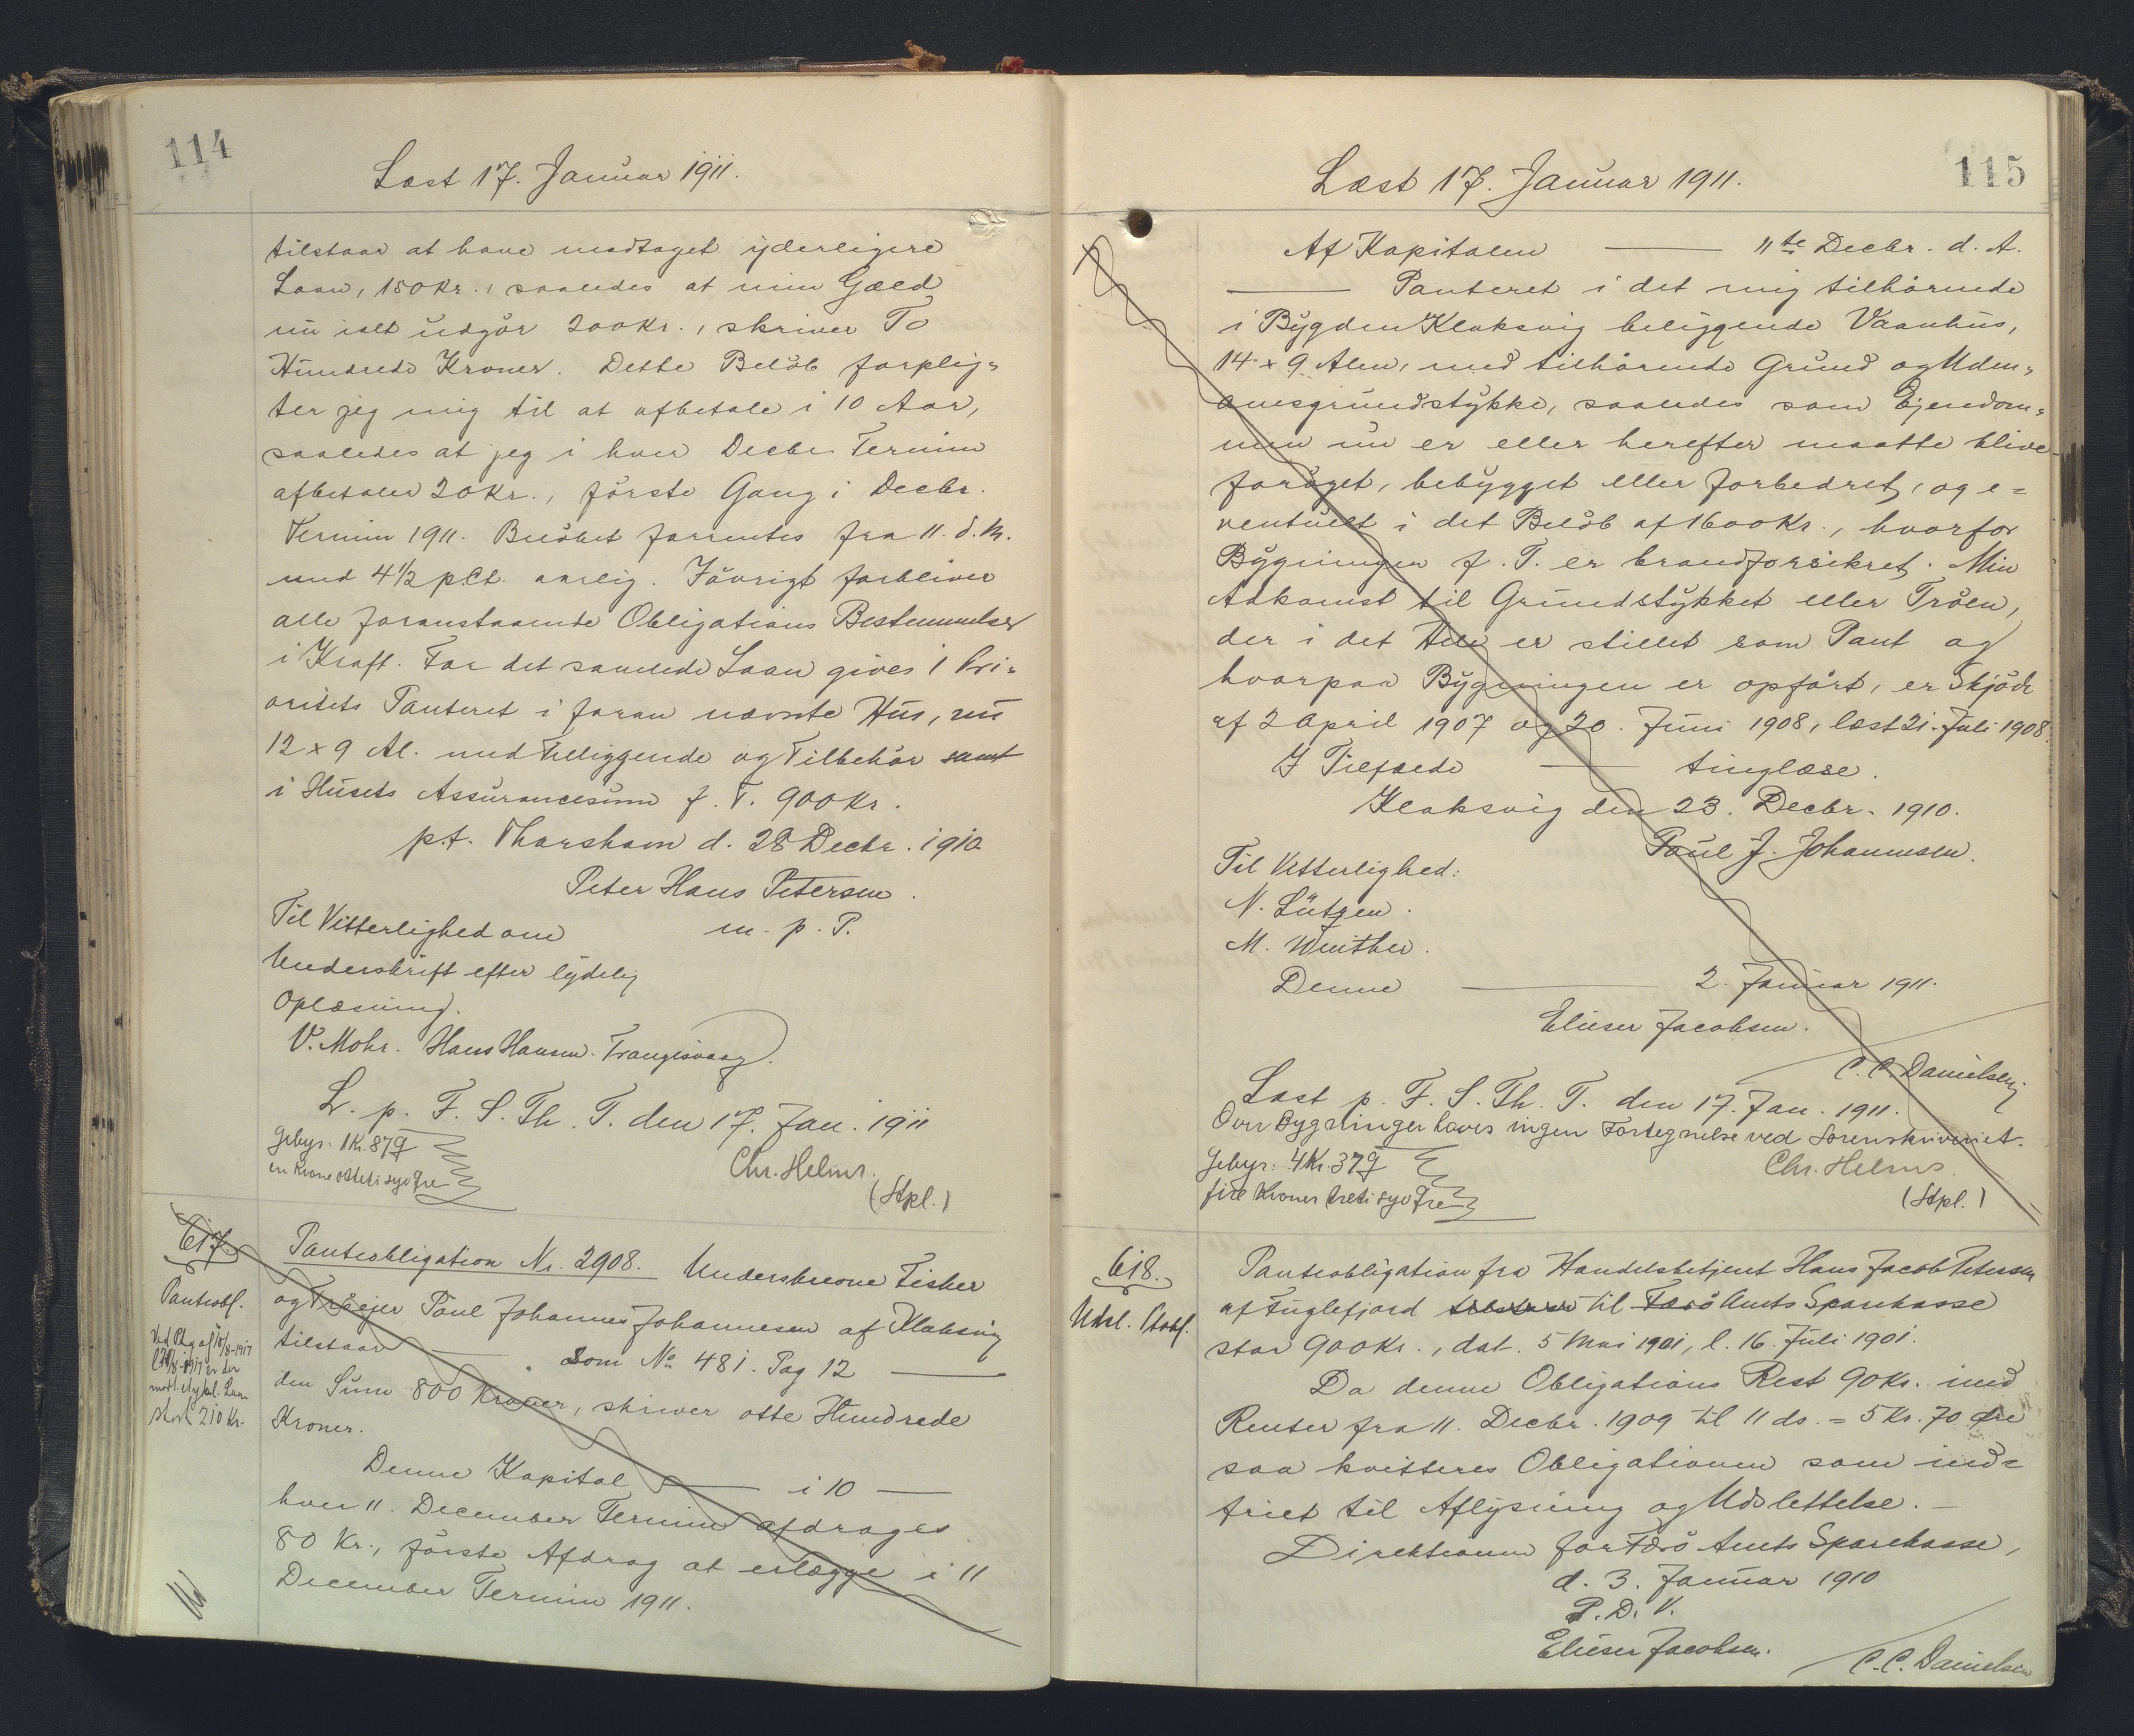 114
Læst 17. Januar 1911.
tilstaar at have modtaget yderligere
Laan, 150 Kr., saaledes at min Gæld
nu ialt udgør 200 Kr., skriver To
Hundrede Kroner. Dette Beløb forplig=
ter jeg mig til at afbetale i 10 Aar,
saaledes at jeg i hver Decbr Termin
afbetaler 20 Kr., første Gang i Decbr.
Termin 1911. Beløbet forrentes fra 11. d. M.
med 4½ pCt. aarlig. Iøvrigt forbliver
alle foranstaaende Obligations Bestemmelser
i Kraft. For det samlede Laan gives 1 Pri=
oritets Panteret i foran nævnte Hus, nu
12 x 9 Al. med Tilliggende og Tilbehør samt
i Husets Assurancesum f. T. 900 Kr.
p.t. Thorshavn d. 28 Decbr. 1910
Peter Hans Petersen.
m. p. P.
Til Vitterlighed om
Underskrift efter lydelig
Oplæsning.
V. Mohr. Hans Hansen. Trangisvaag.
L. p. F. S. Th. T. den 17. Jan. 1911
Gebyr. 1 Kr. 87 Ø
en Krone otteti syv Øre
Chr. Helms.
(Stpl.)
617
Panteobl.
Ved Ptg af 10/8-1917
modt. et nyt Laan
stort 210 Kr.
Panteobligation Nr. 2908. Underskrevne Fisker
og Trøejer Poul Johannes Johannesen af Klaksvig
tilstaar — som No 481. Pag 12 —
den Sum 800 Kroner, skriver otte Hundrede
Kroner.
Denne Kapital — i 10 —
hver 11. December Termin afdrages
80 Kr., første Afdrag at erlægge i 11
December Termin 1911.
115
Læst 17. Januar 1911.
Af Kapitalen — 11te Decbr. d. A.
— Panteret i det mig tilhørende
i Bygden Klaksvig beliggende Vaanhus,
14 x 9 Alen, med tilhørende Grund og Uden=
omsgrundstykke, saaledes som Ejendom=
men nu er eller herefter maatte blive
forøget, bebygget eller forbedret, og e=
ventuelt i det Beløb af 1600 Kr., hvorfor
Bygningen f. T. er brandforsikret. Min
Adkomst til Grundstykket eller Trøen,
der i det Hele er stillet som Pant og
hvorpaa Bygningen er opført, er Skjøde
af 2 April 1907 og 20. Juni 1908, læst 21. Juli 1908.
I Tilfælde — tinglæse.
Klaksvig den 23. Decbr. 1910.
Poul J. Johannesen.
Til Vitterlighed:
N. Lützen.
M. Winther.
Denne — 2. Januar 1911.
Elieser Jacobsen.
C. C. Danielsen
Læst p. F. S. Th. T. den 17. Jan. 1911.
Over Bygninger haves ingen Fortegnelse ved Sorenskriveriet.
Gebyr: 4 Kr. 37 Ø
fire Kroner treti syv Øre
Chr. Helms.
(Stpl.)
618.
Udsl.
Panteobligation fra Handelsbetjent Hans Jacob Petersen
af Fuglefjord tilstaar til Færø Amts Sparekasse
stor 900 Kr., dat. 5 Mai 1901, l. 16. Juli 1901.
Da denne Obligations Rest 90 Kr. med
Renter fra 11. Decbr. 1909 til 11 ds. = 5 Kr. 70 Øre
saa kvitteres Obligationen som ind=
friet til Aflysning og Udslettelse. —
Direktionen for Færø Amts Sparekasse,
d. 3. Januar 1910
P. D. V.
Elieser Jacobsen.
C. C. Danielsen